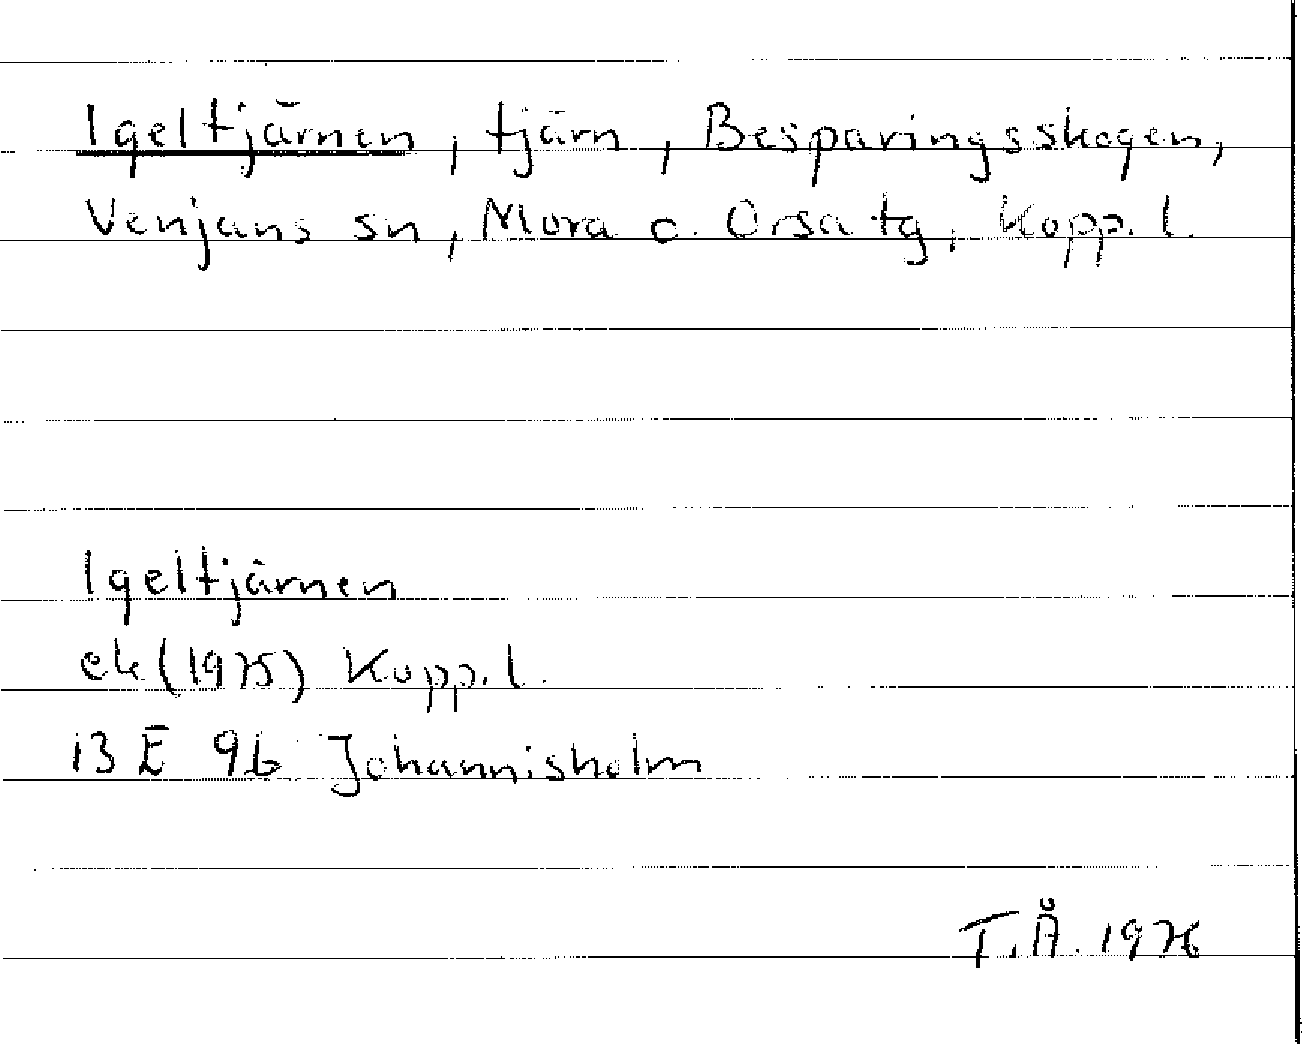 Igeltjärnen, tjärn, Besparingsskogen,
Venjans sn, Mora o. Orsa tg, Kopp. l.
Igeltjärnen
ek (1975) Kopp. l.
13 E 9b Johannisholm
T.Å. 1976